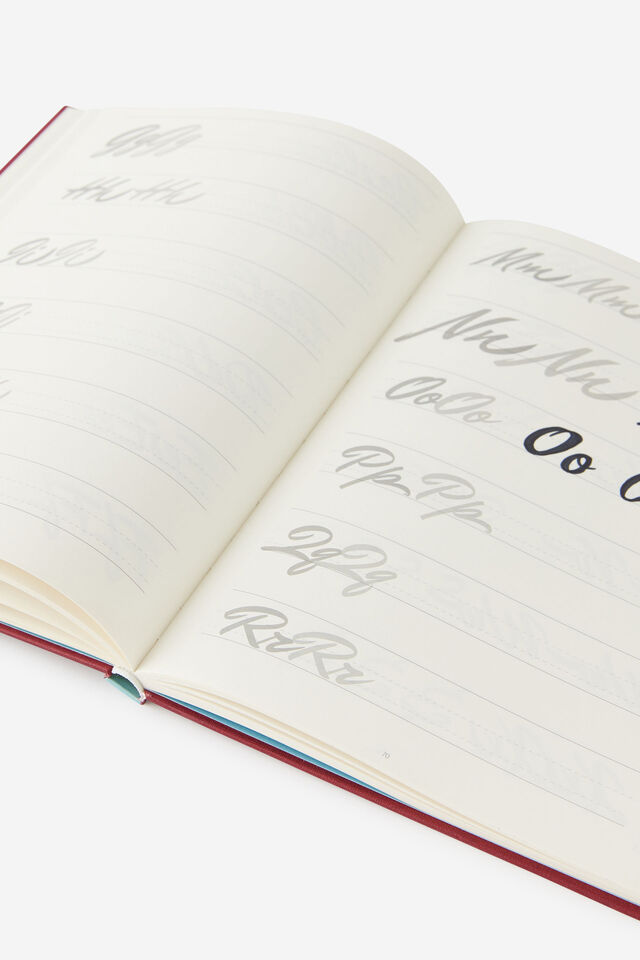 GgGg
HhHh
IiIi
MmMm
NnNn
OoOo Oo
PpPp
QqQq
RrRr
70